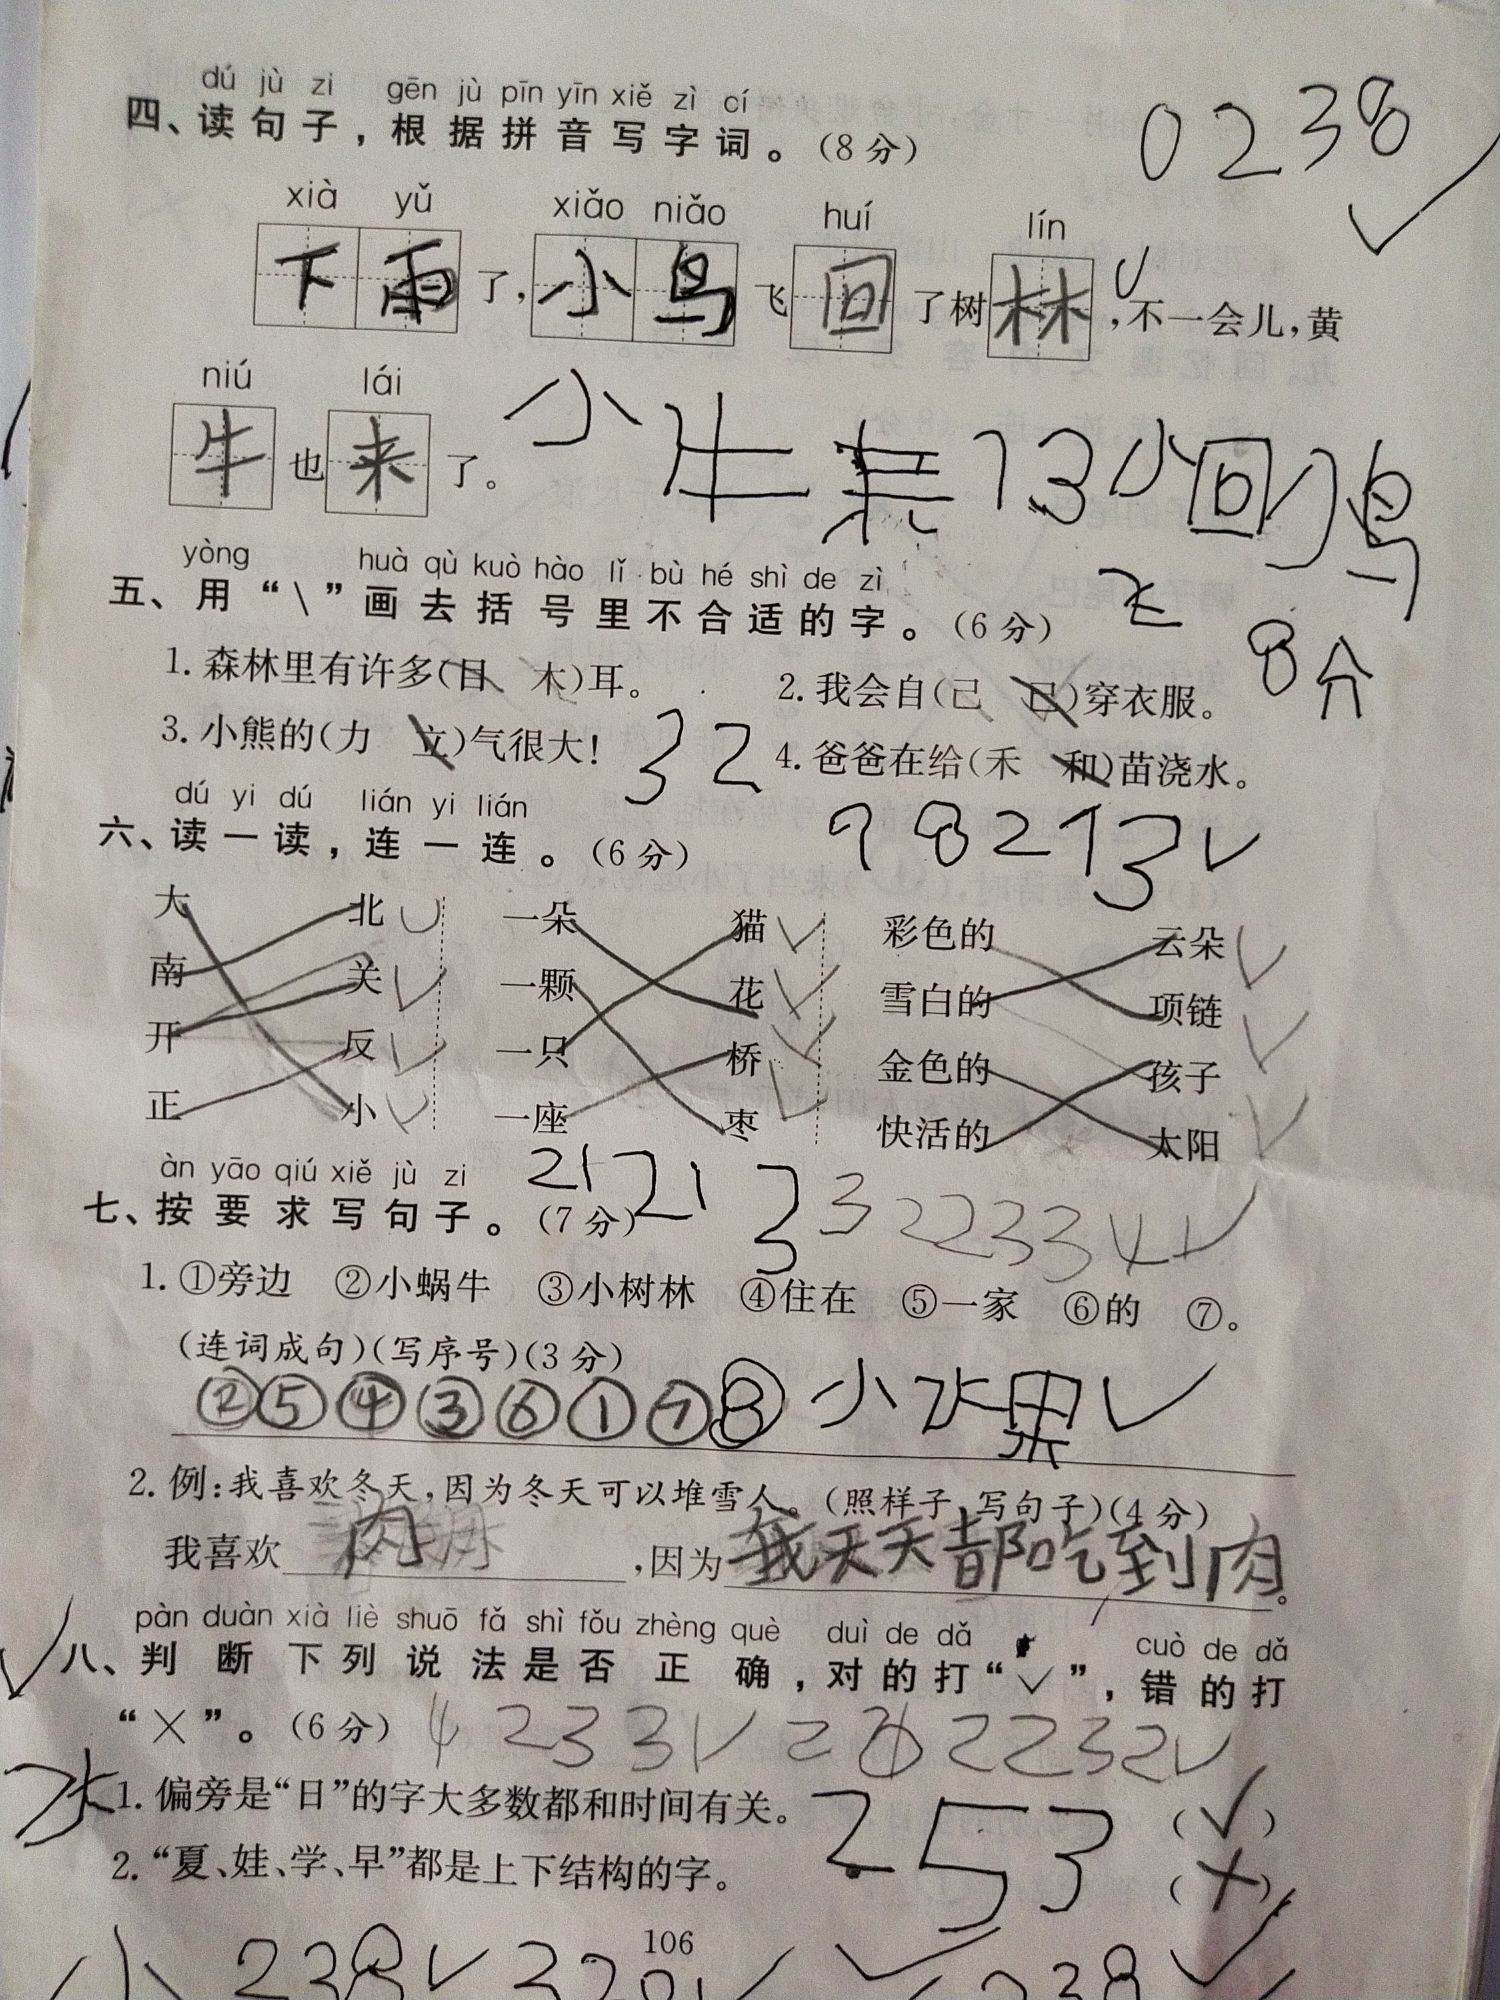 dú jù zi gēn jù pīn yīn xiě zì cí
四、读句子，根据拼音写字词。（8分）
0238✓
xià yǔ xiǎo niǎo huí lín
下雨了，小鸟飞回了树林，不一会儿，黄
niú lái
牛也来了。
小 牛 13小回
yòng huà qù kuò hào lǐ bù hé shì de zì
五、用“\”画去括号里不合适的字。（6分）
飞
8分
1.森林里有许多（目 木）耳。 2.我会自（己 已）穿衣服。
3.小熊的（力 立）气很大！ 32 4.爸爸在给（禾 和）苗浇水。
dú yi dú lián yi lián
六、读一读，连一连。（6分） 98213✓
大 北 一朵 猫 彩色的 云朵
南 关 一颗 花 雪白的 项链
开 反 一只 桥 金色的 孩子
正 小 一座 枣 快活的 太阳
àn yāo qiú xiě jù zi
七、按要求写句子。（7分） 21213322334✓
1.①旁边 ②小蜗牛 ③小树林 ④住在 ⑤一家 ⑥的 ⑦。
（连词成句）（写序号）（3分）
②⑤④③⑥①⑦⑧ 小水果✓
2.例：我喜欢冬天，因为冬天可以堆雪人。（照样子，写句子）（4分）
我喜欢肉，因为我天天都吃到肉。
pàn duàn xià liè shuō fǎ shì fǒu zhèng què duì de dǎ cuò de dǎ
八、判断下列说法是否正确，对的打“✓”，错的打
“×”。（6分） 4233✓
水
1.偏旁是“日”的字大多数都和时间有关。 （✓）
253
2.“夏、娃、学、早”都是上下结构的字。 （×）
106
小 238✓320✓ ✓ 238✓